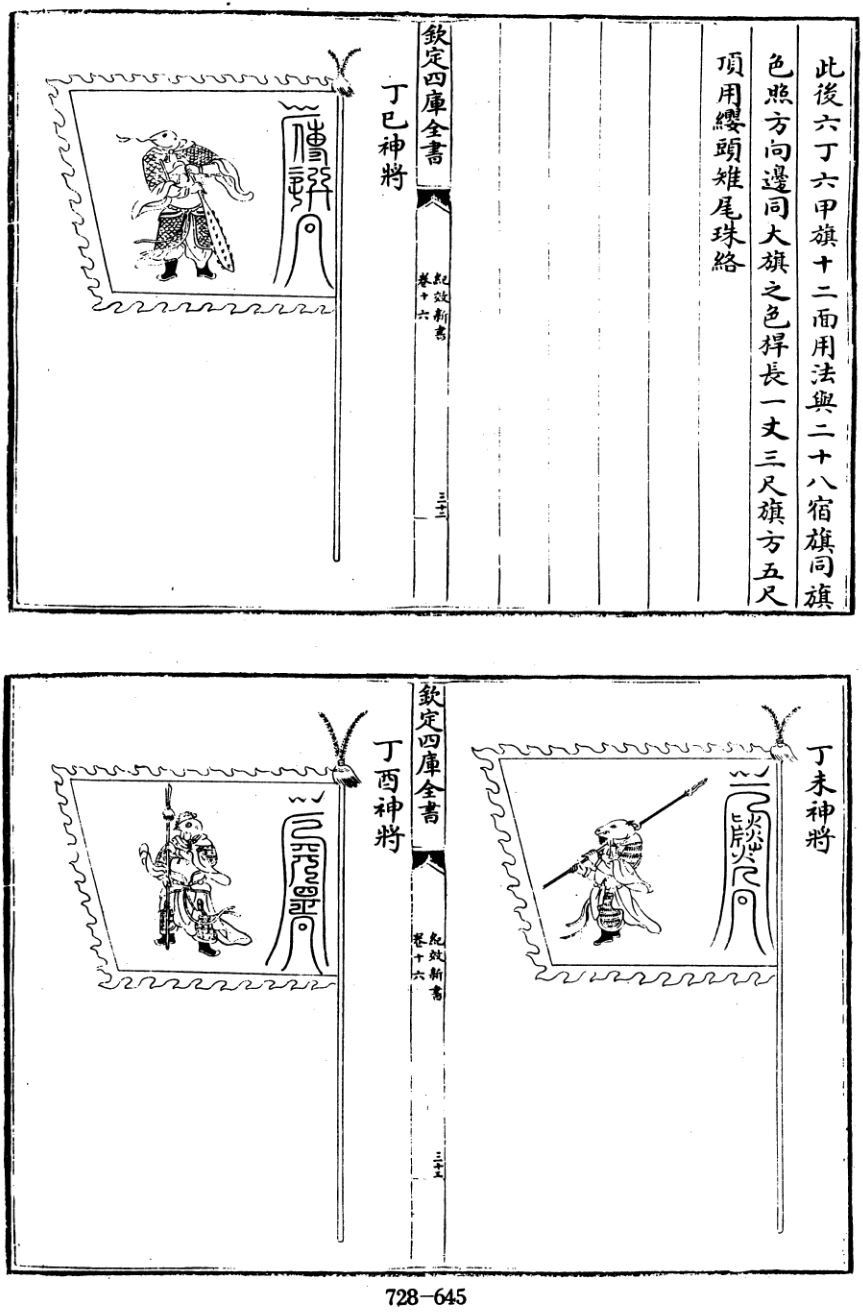 此後六丁六甲旗十二面用法與二十八宿旗同旗
色照方向邊同大旗之色桿長一丈三尺旗方五尺
頂用纓頭雉尾珠絡
欽定四庫全書
紀效新書
卷十六
三十二
丁巳神將
丁未神將
欽定四庫全書
紀效新書
卷十六
三十三
丁酉神將
728-645